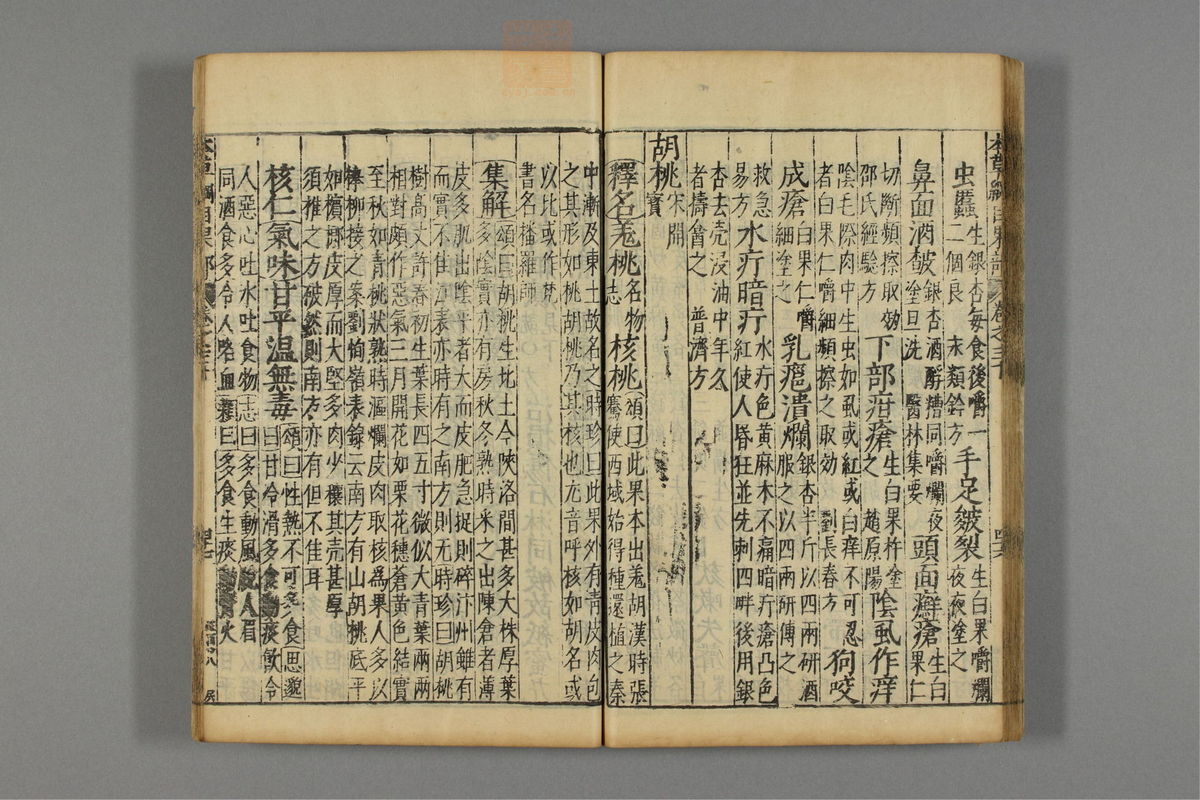 虫䘌生銀杏每食後嚼一二個良 永類鈐方 手足皴裂生白果嚼爛夜夜塗之
鼻面酒皶銀杏酒酵糟同嚼爛夜塗旦洗 醫林集要 頭面癬瘡生白果仁
切斷頻擦取効 邵氏經驗方 下部疳瘡生白果杵塗之 趙原陽 陰虱作痒
陰毛際肉中生虫如虱或紅或白痒不可忍者白果仁嚼細頻擦之取効 劉長春方 狗咬
成瘡白果仁嚼細塗之 乳癰潰爛銀杏半斤以四兩研酒服之以四兩研傅之
救急易方 水疔暗疔水疔色黃麻木不痛暗疔瘡凸色紅使人昏狂並先刺四畔後用銀
杏去壳浸油中年久者擣盦之 普濟方
胡桃宋開寶
釋名羗桃名物志 核桃頌曰此果本出羗胡漢時張騫使西域始得種還植之秦
中漸及東土故名之時珍曰此果外有青皮肉包之其形如桃胡桃乃其核也羗音呼核如胡名或
以此或作梵書名播羅師
集解頌曰胡桃生北土今陝洛間甚多大株厚葉多陰實亦有房秋冬熟時采之出陳倉者薄
皮多肌出陰平者大而皮肥急捉則碎汴州雖有而實不佳江表亦時有之南方則无時珍曰胡桃
樹高丈許春初生葉長四五寸微似大青葉兩兩相對頗作惡氣三月開花如栗花穗蒼黃色結實
至秋如青桃狀熟時漚爛皮肉取核為果人多以櫸柳接之案劉恂嶺表錄云南方有山胡桃底平
如檳榔皮厚而大堅多肉少穰其壳甚厚須椎之方破然則南方亦有但不佳耳
核仁氣味甘平溫無毒頌曰性熱不可多食思邈曰甘冷滑多食動痰飲令
人惡心吐水吐食物志曰多食動風脫人眉同酒食多令人咯血頴曰多食生痰動火